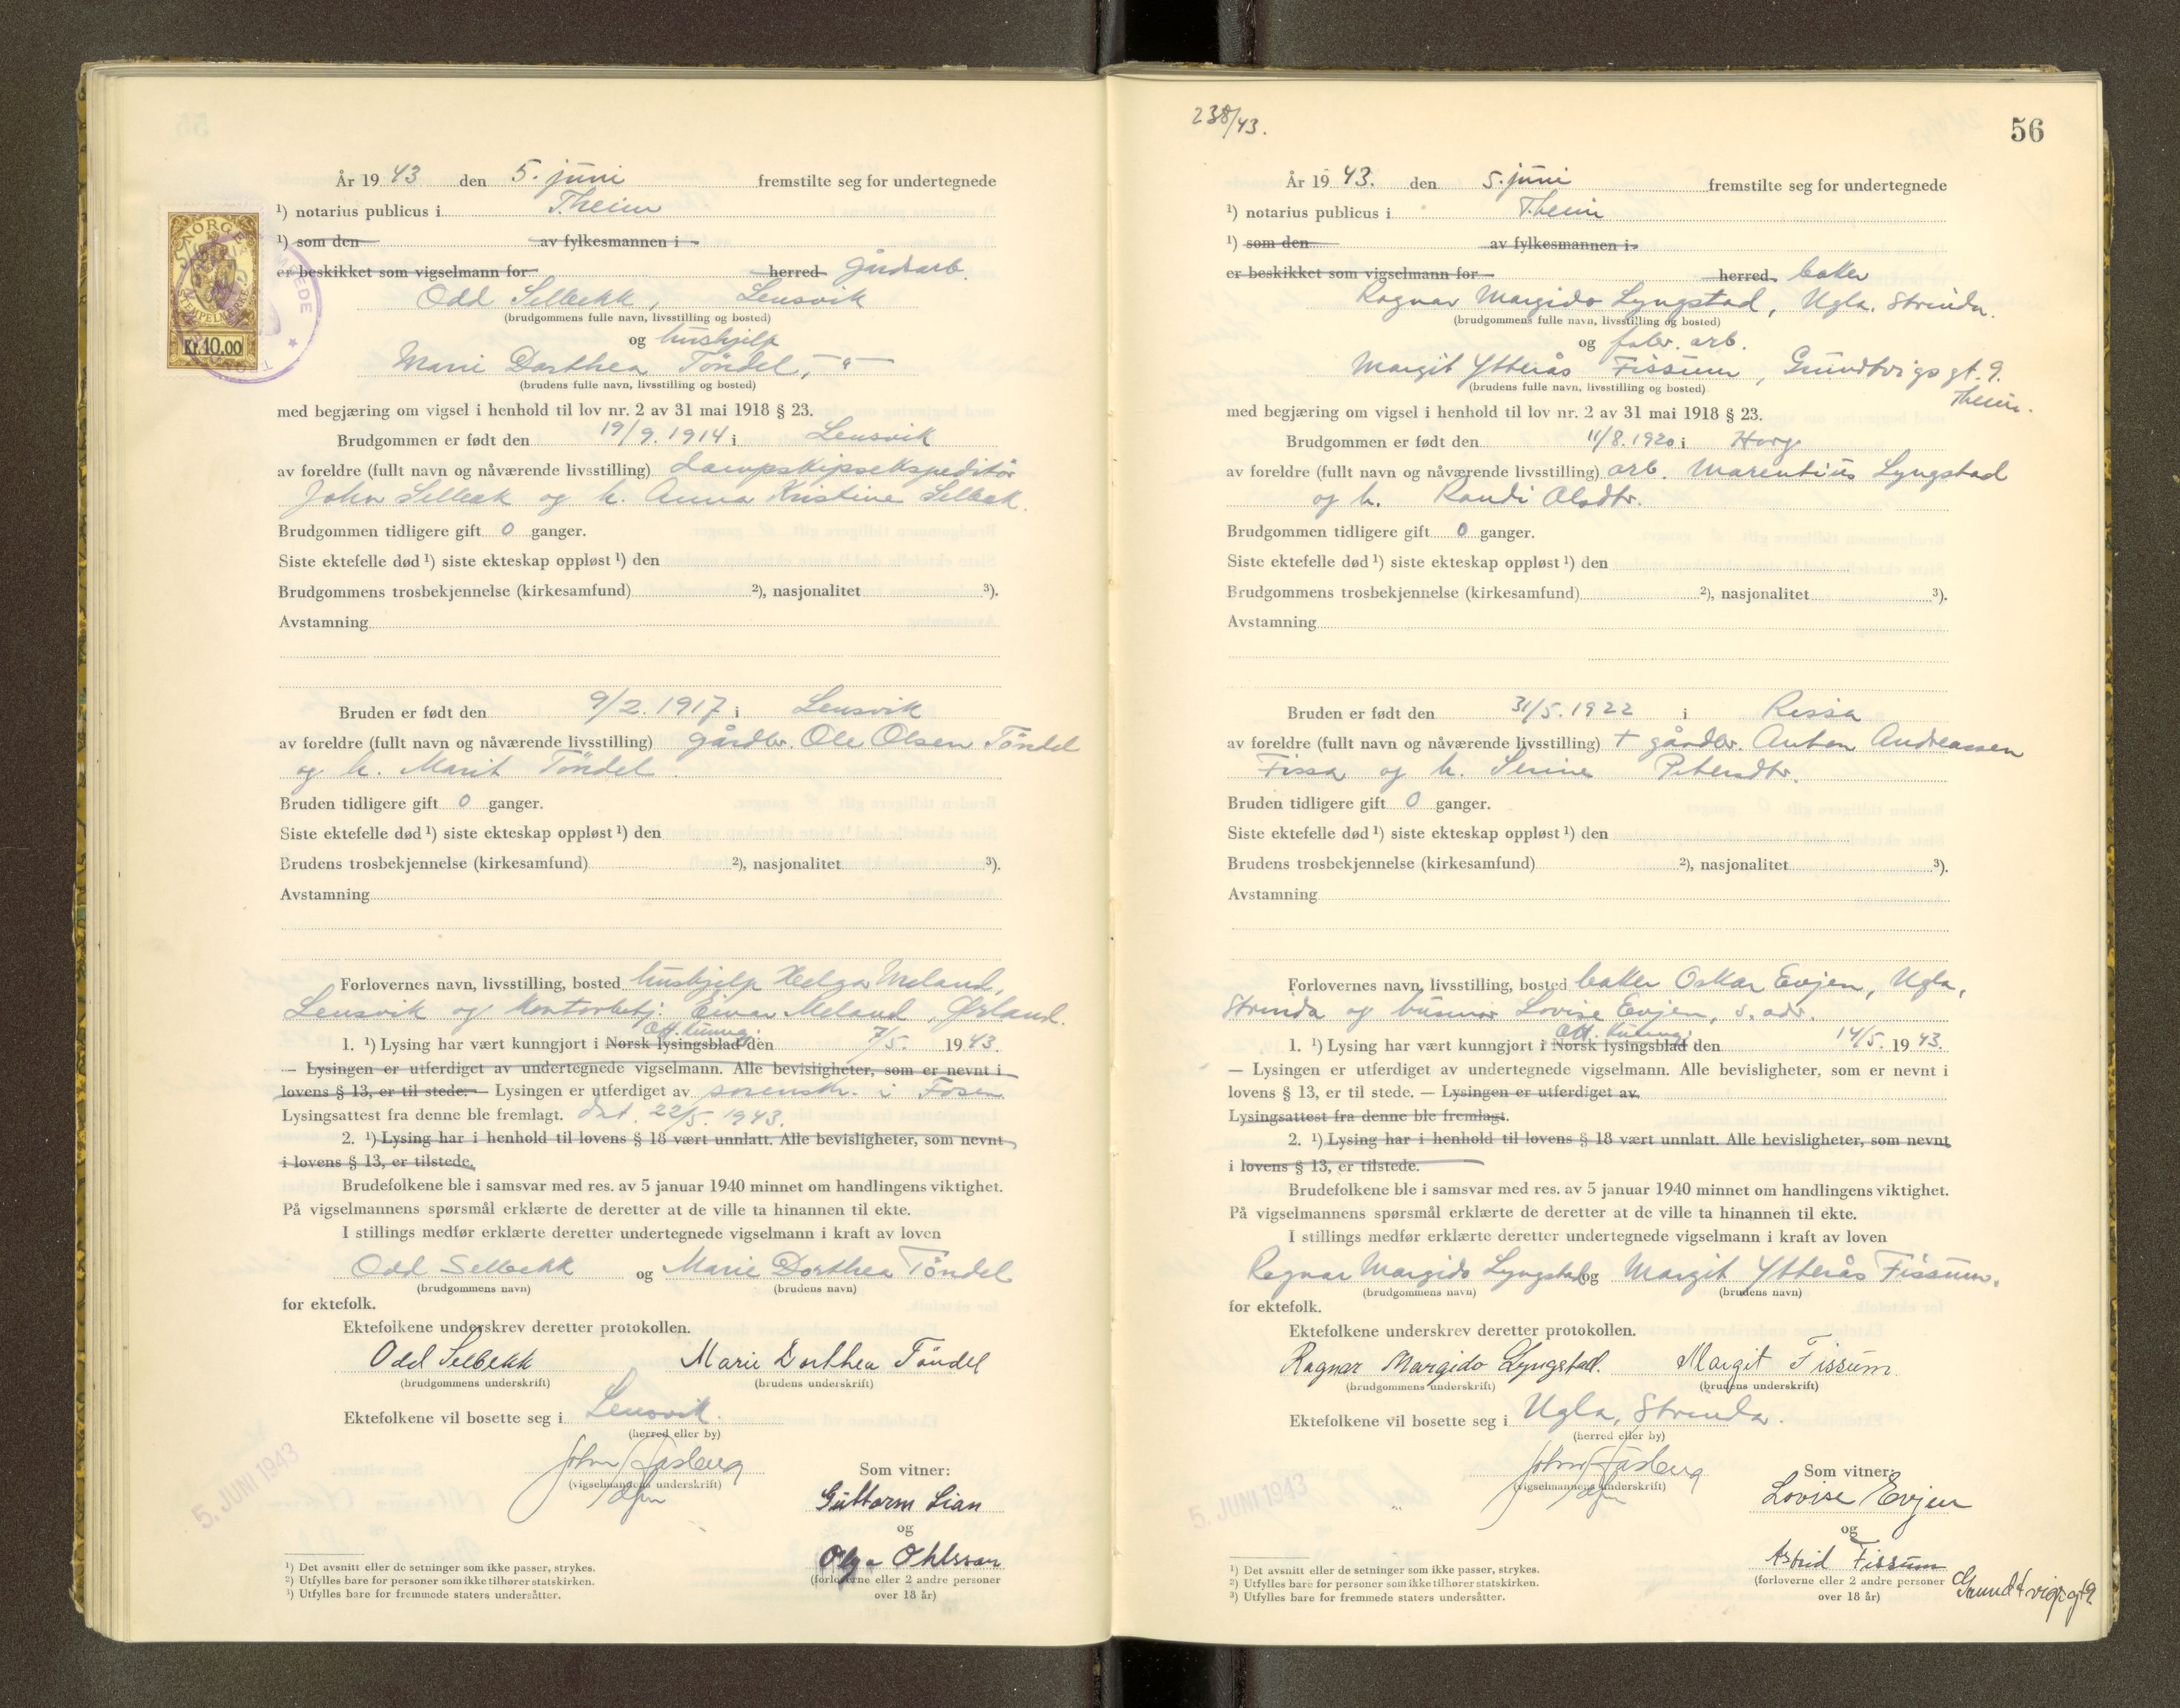 År 1943 den 5. juni fremstilte seg for undertegnede
¹) notarius publicus i Theim
¹) som den av fylkesmannen i
er beskikket som vigselmann for herred gårdarb.
Odd Selbekk, Lensvik
(brudgommens fulle navn, livsstilling og bosted)
og hushjelp
Marie Dorthea Töndel, -"-
(brudens fulle navn, livsstilling og bosted)
NORGE
STEMPELMERKE
Kr. 10.00
med begjæring om vigsel i henhold til lov nr. 2 av 31 mai 1918 § 23.
Brudgommen er født den 19/9. 1914 i Lensvik
av foreldre (fullt navn og nåværende livsstilling) dampskipsekspeditör
John Selbæk og h. Anna Kristine Selbæk.
Brudgommen tidligere gift 0 ganger.
Siste ektefelle død ¹) siste ekteskap oppløst ¹) den
Brudgommens trosbekjennelse (kirkesamfund) ²), nasjonalitet ³).
Avstamning
Bruden er født den 9/2. 1917 i Lensvik
av foreldre (fullt navn og nåværende livsstilling) gårdbr. Ole Olsen Töndel
og h. Marit Töndel.
Bruden tidligere gift 0 ganger.
Siste ektefelle død ¹) siste ekteskap oppløst ¹) den
Brudens trosbekjennelse (kirkesamfund) ²), nasjonalitet ³).
Avstamning
Forlovernes navn, livsstilling, bosted hushjelp Helga Meland,
Lensvik og kontorbetj. Einar Meland, Ørland.
Off. kunng.
1. ¹) Lysing har vært kunngjort i Norsk lysingsblad den 7/5. 1943.
— Lysingen er utferdiget av undertegnede vigselmann. Alle bevisligheter, som er nevnt i
lovens § 13, er til stede. — Lysingen er utferdiget av sorenskr. i Fosen
Lysingsattest fra denne ble fremlagt. dat. 22/5. 1943.
2. ¹) Lysing har i henhold til lovens § 18 vært unnlatt. Alle bevisligheter, som nevnt
i lovens § 13, er tilstede.
Brudefolkene ble i samsvar med res. av 5 januar 1940 minnet om handlingens viktighet.
På vigselmannens spørsmål erklærte de deretter at de ville ta hinannen til ekte.
I stillings medfør erklærte deretter undertegnede vigselmann i kraft av loven
Odd Selbekk og Marie Dorthea Töndel
(brudgommens navn) (brudens navn)
for ektefolk.
Ektefolkene underskrev deretter protokollen.
Odd Selbekk Marie Dorthea Töndel
(brudgommens underskrift) (brudens underskrift)
Ektefolkene vil bosette seg i Lensvik.
(herred eller by)
5. JUNI 1943
(vigselmannens underskrift)
Som vitner:
Guttorm Lian
og
Olga Ohlsson
(forloverne eller 2 andre personer
over 18 år)
¹) Det avsnitt eller de setninger som ikke passer, strykes.
²) Utfylles bare for personer som ikke tilhører statskirken.
³) Utfylles bare for fremmede staters undersåtter.
238/43.
56
År 1943. den 5. juni fremstilte seg for undertegnede
¹) notarius publicus i Theim
¹) som den av fylkesmannen i
er beskikket som vigselmann for herred baker
Ragnar Margido Lyngstad, Ugla, Strinda.
(brudgommens fulle navn, livsstilling og bosted)
og fabr. arb.
Margit Ytterås Fissum, Grundtvigs gt. 9.
(brudens fulle navn, livsstilling og bosted)
Theim.
med begjæring om vigsel i henhold til lov nr. 2 av 31 mai 1918 § 23.
Brudgommen er født den 11/8. 1920 i Horg
av foreldre (fullt navn og nåværende livsstilling) arb. Marentius Lyngstad
og h. Randi Olsdtr.
Brudgommen tidligere gift 0 ganger.
Siste ektefelle død ¹) siste ekteskap oppløst ¹) den
Brudgommens trosbekjennelse (kirkesamfund) ²), nasjonalitet ³).
Avstamning
Bruden er født den 31/5. 1922 i Rissa
av foreldre (fullt navn og nåværende livsstilling) + gårdbr. Anton Andreassen
Fissa og h. Serine Petersdtr.
Bruden tidligere gift 0 ganger.
Siste ektefelle død ¹) siste ekteskap oppløst ¹) den
Brudens trosbekjennelse (kirkesamfund) ²), nasjonalitet ³).
Avstamning
Forlovernes navn, livsstilling, bosted baker Oskar Evjen, Ugla,
Strinda og husmor Lovise Evjen, s. adr.
Off. kunng.
1. ¹) Lysing har vært kunngjort i Norsk lysingsblad den 14/5. 1943.
— Lysingen er utferdiget av undertegnede vigselmann. Alle bevisligheter, som er nevnt i
lovens § 13, er til stede. — Lysingen er utferdiget av
Lysingsattest fra denne ble fremlagt.
2. ¹) Lysing har i henhold til lovens § 18 vært unnlatt. Alle bevisligheter, som nevnt
i lovens § 13, er tilstede.
Brudefolkene ble i samsvar med res. av 5 januar 1940 minnet om handlingens viktighet.
På vigselmannens spørsmål erklærte de deretter at de ville ta hinannen til ekte.
I stillings medfør erklærte deretter undertegnede vigselmann i kraft av loven
Ragnar Margido Lyngstad og Margit Ytterås Fissum.
(brudgommens navn) (brudens navn)
for ektefolk.
Ektefolkene underskrev deretter protokollen.
Ragnar Margido Lyngstad. Margit Fissum
(brudgommens underskrift) (brudens underskrift)
Ektefolkene vil bosette seg i Ugla, Strinda.
(herred eller by)
5. JUNI 1943
(vigselmannens underskrift)
Som vitner:
Lovise Evjen
og
Astrid Fissum
(forloverne eller 2 andre personer
over 18 år)
Grundtvigsgt 9
¹) Det avsnitt eller de setninger som ikke passer, strykes.
²) Utfylles bare for personer som ikke tilhører statskirken.
³) Utfylles bare for fremmede staters undersåtter.